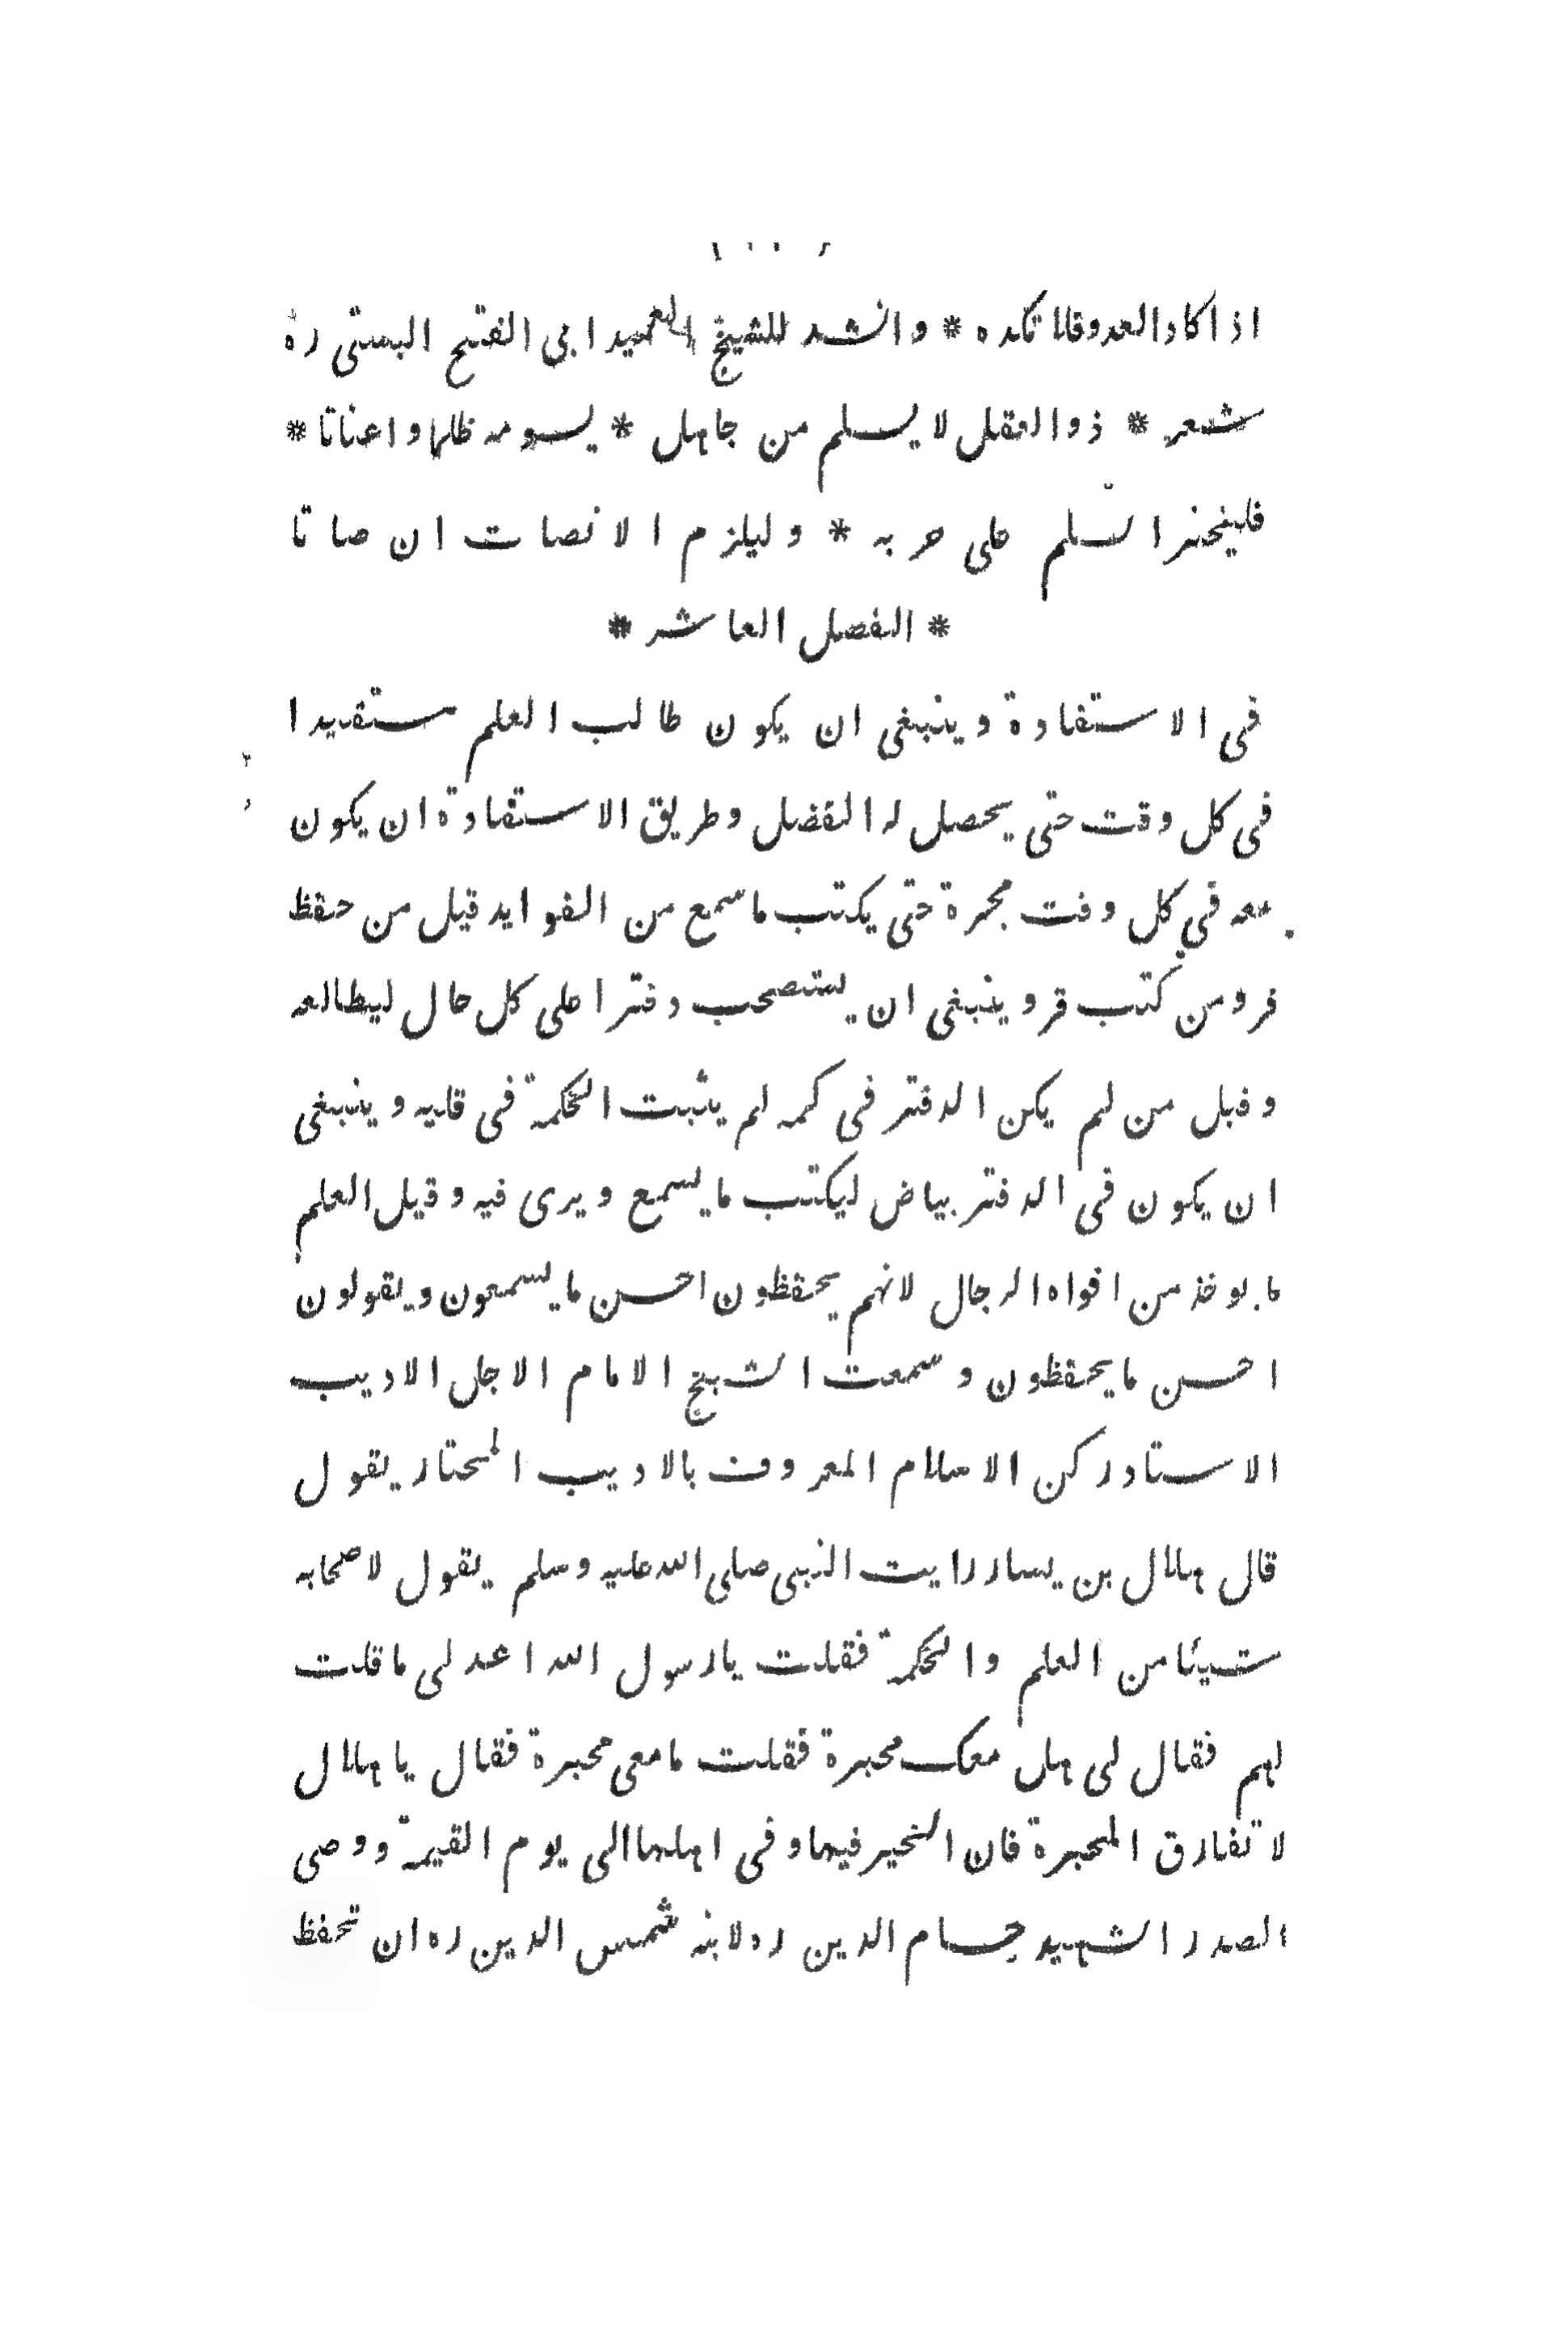 اذا كاد العدو فلا تكده * وانشد للشيخ العميد ابى الفتح البستى ره
شعر * ذوالعقل لا يسلم من جاهل * يسومه ظلما واعناتا *
فليختر السلم على حربه * وليلزم الانصات ان صاتا
* الفصل العاشر *
فى الاستفادة وينبغى ان يكون طالب العلم ستفيدا
فى كل وقت حتى يحصل له الفضل وطريق الاستفادة ان يكون
معه فى كل وقت محبرة حتى يكتب ماسمع من الفوايد قيل من حفظ
فرومن كتب قرو ينبغى ان يستصحب دفترا على كل حال ليطالعه
وقيل من لم يكن الدفتر فى كمه لم يثبت الحكمة فى قلبه وينبغى
ان يكون فى الدفتر بياض ليكتب مايسمع ويرى فيه وقيل العلم
مايوخذ من افواه الرجال لانهم يحفظون احسن مايسمعون ويقولون
احسن مايحفظون وسمعت الشيخ الامام الاجل الاديب
الاستادركن الاسلام المعروف بالاديب المختار يقول
قال هلال بن يسار رايت النبى صلى الله عليه وسلم يقول لاصحابه
شيئا من العلم والحكمة فقلت يارسول الله اعد لى ماقلت
لهم فقال لى هل معك محبرة فقلت مامعى محبرة فقال ياهلال
لا تفارق المحبرة فان الخير فيها وفى اهلها الى يوم القيمة ووصى
الصدر الشهيد حسام الدين ره لابنه شمس الدين ره ان تحفظ